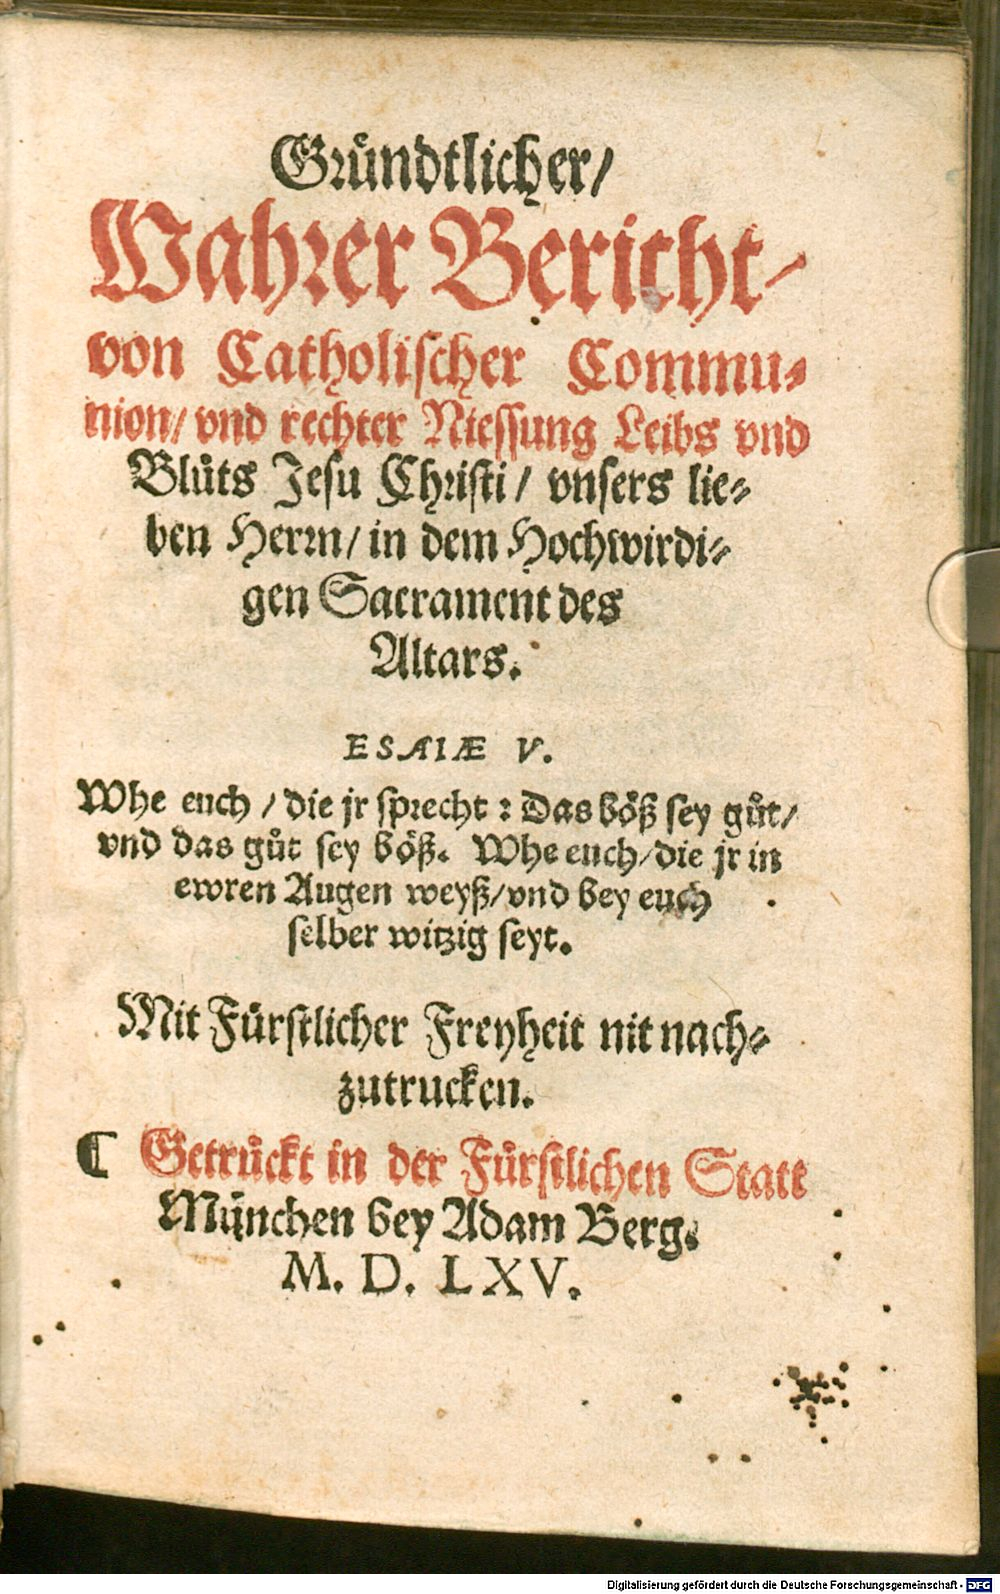 Gründtlicher/
Wahrer Bericht/
von Catholischer Commu⸗
nion/ vnd rechter Niessung Leibs vnd
Blůts Jesu Christi/ vnsers lie⸗
ben Herrn/ in dem Hochwirdi⸗
gen Sacrament des
Altars.
ESAIÆ V.
Whe euch/ die jr sprecht: Das böß sey gůt/
vnd das gůt sey böß. Whe euch/ die jr in
ewren Augen weyß/ vnd bey euch
selber witzig seyt.
Mit Fürstlicher Freyheit nit nach⸗
zutrucken.
Getrückt in der Fürstlichen Statt
München bey Adam Berg.
M. D. LXV.
Digitalisierung gefördert durch die Deutsche Forschungsgemeinschaft - DFG